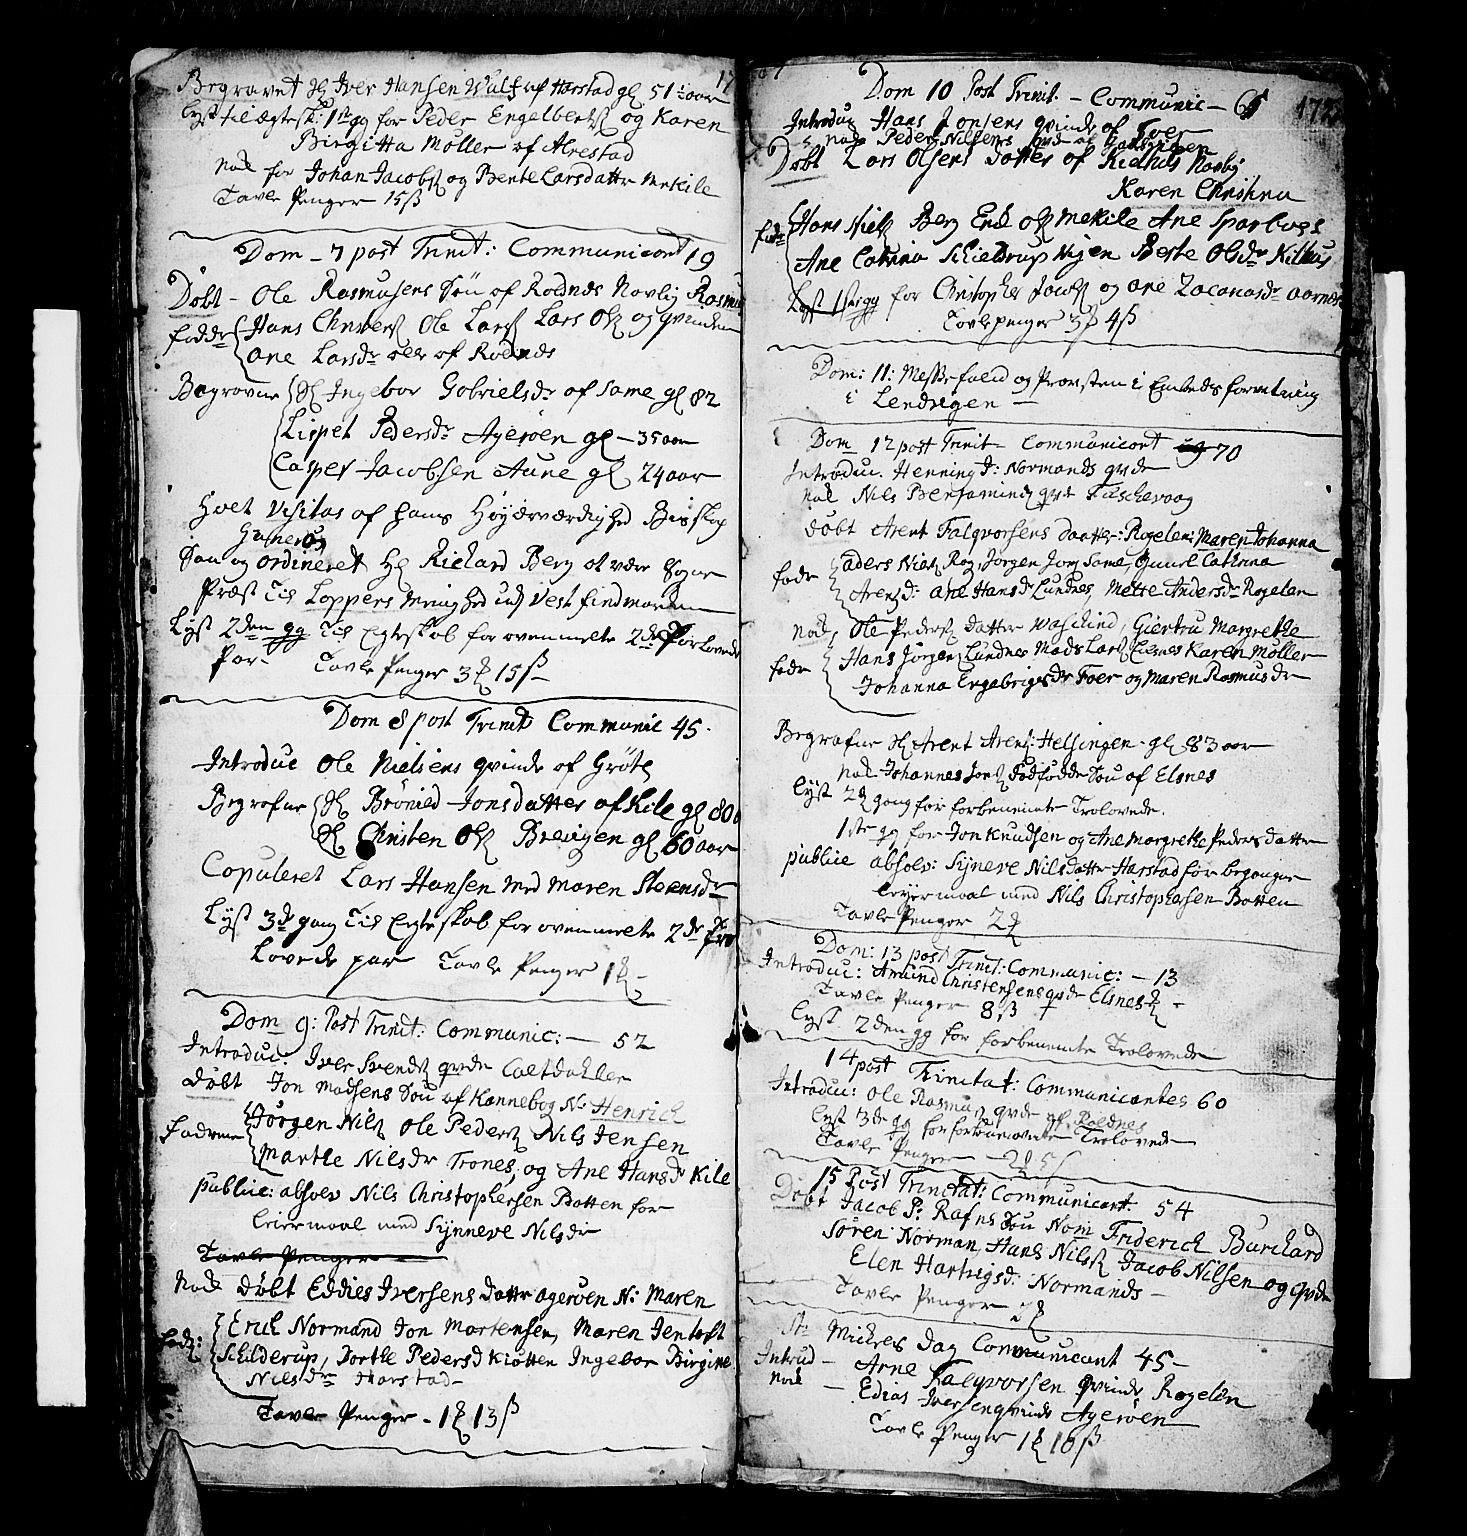 Begravet Sl Iver Hansen Wulf af Harstad gl 51 1/2 aar
Lyst til ægtesk: 1ste gg for Peder Engelbertz og Karen
Birgitta Møller af Alrestad
Nok for Johan Jacobs og Bente Larsdatter Mekile
Tavle Penger 15 ß
Dom – 7 post Trinit: Communicant 19
Døbt – Ole Rasmusens Søn af Rodnes Navlig Rasmus
faddr Hans Christens Ole Larss Lars Ols og qvinden
Ane Larsdr alle af Rodnes
Begravne Sl Ingebor Gabrielsdr af Same gl 82
Lispet Pedersdr Agerøen gl – 35 aar
Casper Jacobsen Aune gl 24 aar
Holt Visitas af hans Høyærværdighed Biskop
Gunnerus
Saa og ordineret Hr Richard Berg at være Sogne
Præst Til Loppers Menighed udj Vest findmarken
Lyst 2den gg Til Egteskab for ovenmelte 2de Forlovede
Par – Tavle Penger 3 15 ß –
Dom 8 post Trinit Communic 45.
Introduc Ole Nielsens qvinde af Grøtz
Begrafne Sl Brønild Jonsdatter af Kile gl 80
Sl Christen Ols Brevigen gl 60 aar
Copuleret Lars Hansen med Maren Steensdr
Lyst 3de gang Til Egteskab for ovenmelte 2de Tro
Lovede par Tavle Penger 1 –
Dom 9: Post Trinit: Communic: — 52
Introduc: Iver Svends qvde
Døbt Jon Madsens Søn af Kannebog N: Henrich
Fadrene Jørgen Nils Ole Peders Nils Jensen
Marthe Nilsdr Trones, og Ane Hansdr Kile
publice: absolv Nils Christophersen Botten for
Leiermaal med Synneve Nilsdr
Tavle Penger
Nok Døbt Eddies Iversens datter Agerøen N: Maren
fad: Erich Normand Jon Mortensen, Maren Jentoft
Schilderup, Dorthe Pedersd Kiøtten Ingebor Birgine
Nilsdr Harstad –
Tavle Penger – 1 13 ß
Dom 10 Post Trinit. – Communic – 65
Introduc Hans Jonsens qvinde af Foer
nok Peder Nilsens qvd af
Døbt Lars Olsens Datter af Kielhus Navby
Karen Christina
fadr Hans Niels Berg Erik Ols Mekile Ane
Ane Catrina Schieldrup Vigen Berte Olsdr Kilhus
Lyst 1ste gg for Christopher Jacobs og Ane Zacariasdr Aarnes
Tavlepenger 3 4 ß
Dom: 11: Messefald og Provsten i Embeds forretning
i Lendvigen —
Dom 12 post Trinit – Communicant 70
Introduc. Henning d: Normands qvde
Nok Nils Benjamins qvde
Døbt Arent Falqvorsens datter: Rogelen: Maren Johanna
fadr aders Niels Rog, Jørgen Jons Same, Gunil Catrina
Arensd: Ane Hansdr Lundnes, Mette Andersdr Rogelen
Nok, Ole Peders datter Waschind, Giertru Margrethe
fadr Hans Jørgens Lundnes Mads Lars Elgnes Karen Møller
Johanna Engebrigtsdr Foer og Maren Rasmusdr
Begrafne Sl Arent Arents: Helsingen – gl 83 aar
Nok Johannes Jons Dødfødde Søn af Elsnes
Lyst 2 gang for forbenemte Trolovede.
1ste gg for Jon Knudsen og Ane Margrethe Pedersdatter
publice absolv: Synneve Nilsdatter Harstad for begangen
Leyermaal med Nils Christophersen Botten
Tavle Penger 2
Dom: 13 post Trinit: Communic: – 13
Introduc: Amund Christensens qvde Elsnes –
Tavle Penger 8 ß
Lyst 2den gg for forbenemte Trolovede
14 post Trinitat: Communicantes 60
Introduc: Ole Rasmus qvde af Roldnes
Lyst 3de gg for forbenemte Trolovede
Tavle Penger – 2 5 ß
15 Post Trinitat: Communicant. 54
Døbt Jacob P: Rafns Søn Nom Friderich Burchard
Søren Norman, Hans Nils Jacob Nilsen og qvde
Elen Hartvigsd: Normands –
Tavle Penger – 2
St Mickels Dag Communicant 45 –
Introd – Arne Falqvorsen qvinde Rogelen
Nok – Edias Iversen qvinde Agerøen
Tavle Penger 1 10 ß